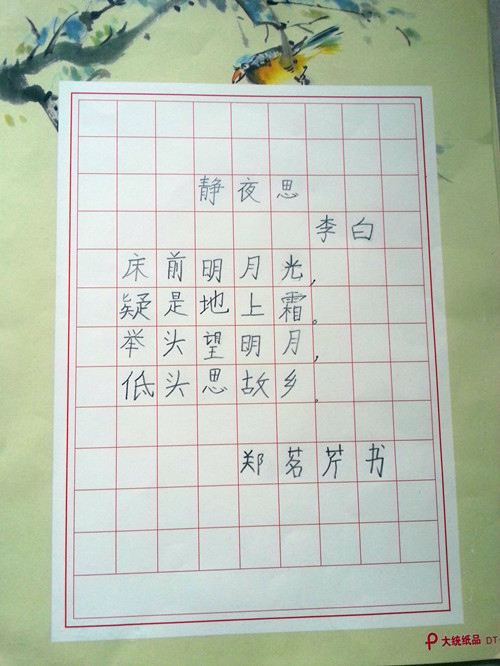 静夜思
李白
床前明月光，
疑是地上霜。
举头望明月，
低头思故乡。
郑茗芹书
大统纸品 DT